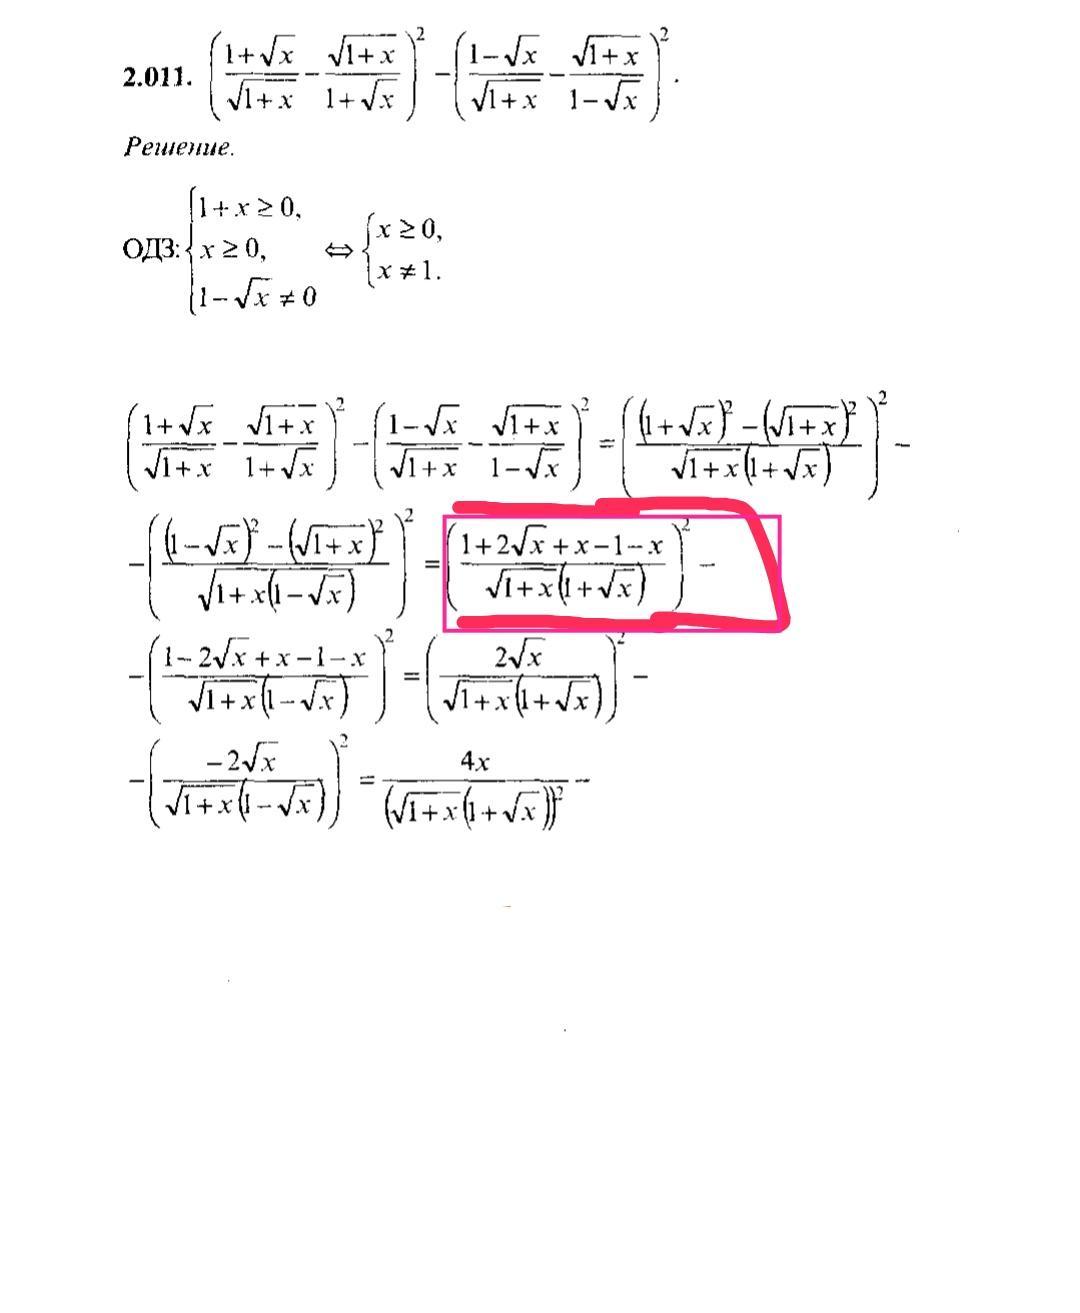 2.011. ((1+√x)/√(1+x) − √(1+x)/(1+√x))² − ((1−√x)/√(1+x) − √(1+x)/(1−√x))².
Решение.
ОДЗ: {1+x ≥ 0, x ≥ 0, 1−√x ≠ 0 ⇔ {x ≥ 0, x ≠ 1.
((1+√x)/√(1+x) − √(1+x)/(1+√x))² − ((1−√x)/√(1+x) − √(1+x)/(1−√x))² = (((1+√x)² − (√(1+x))²)/(√(1+x)(1+√x)))² −
− (((1−√x)² − (√(1+x))²)/(√(1+x)(1−√x)))² = ((1+2√x+x−1−x)/(√(1+x)(1+√x)))² −
− ((1−2√x+x−1−x)/(√(1+x)(1−√x)))² = (2√x/(√(1+x)(1+√x)))² −
− (−2√x/(√(1+x)(1−√x)))² = 4x/(√(1+x)(1+√x))² −